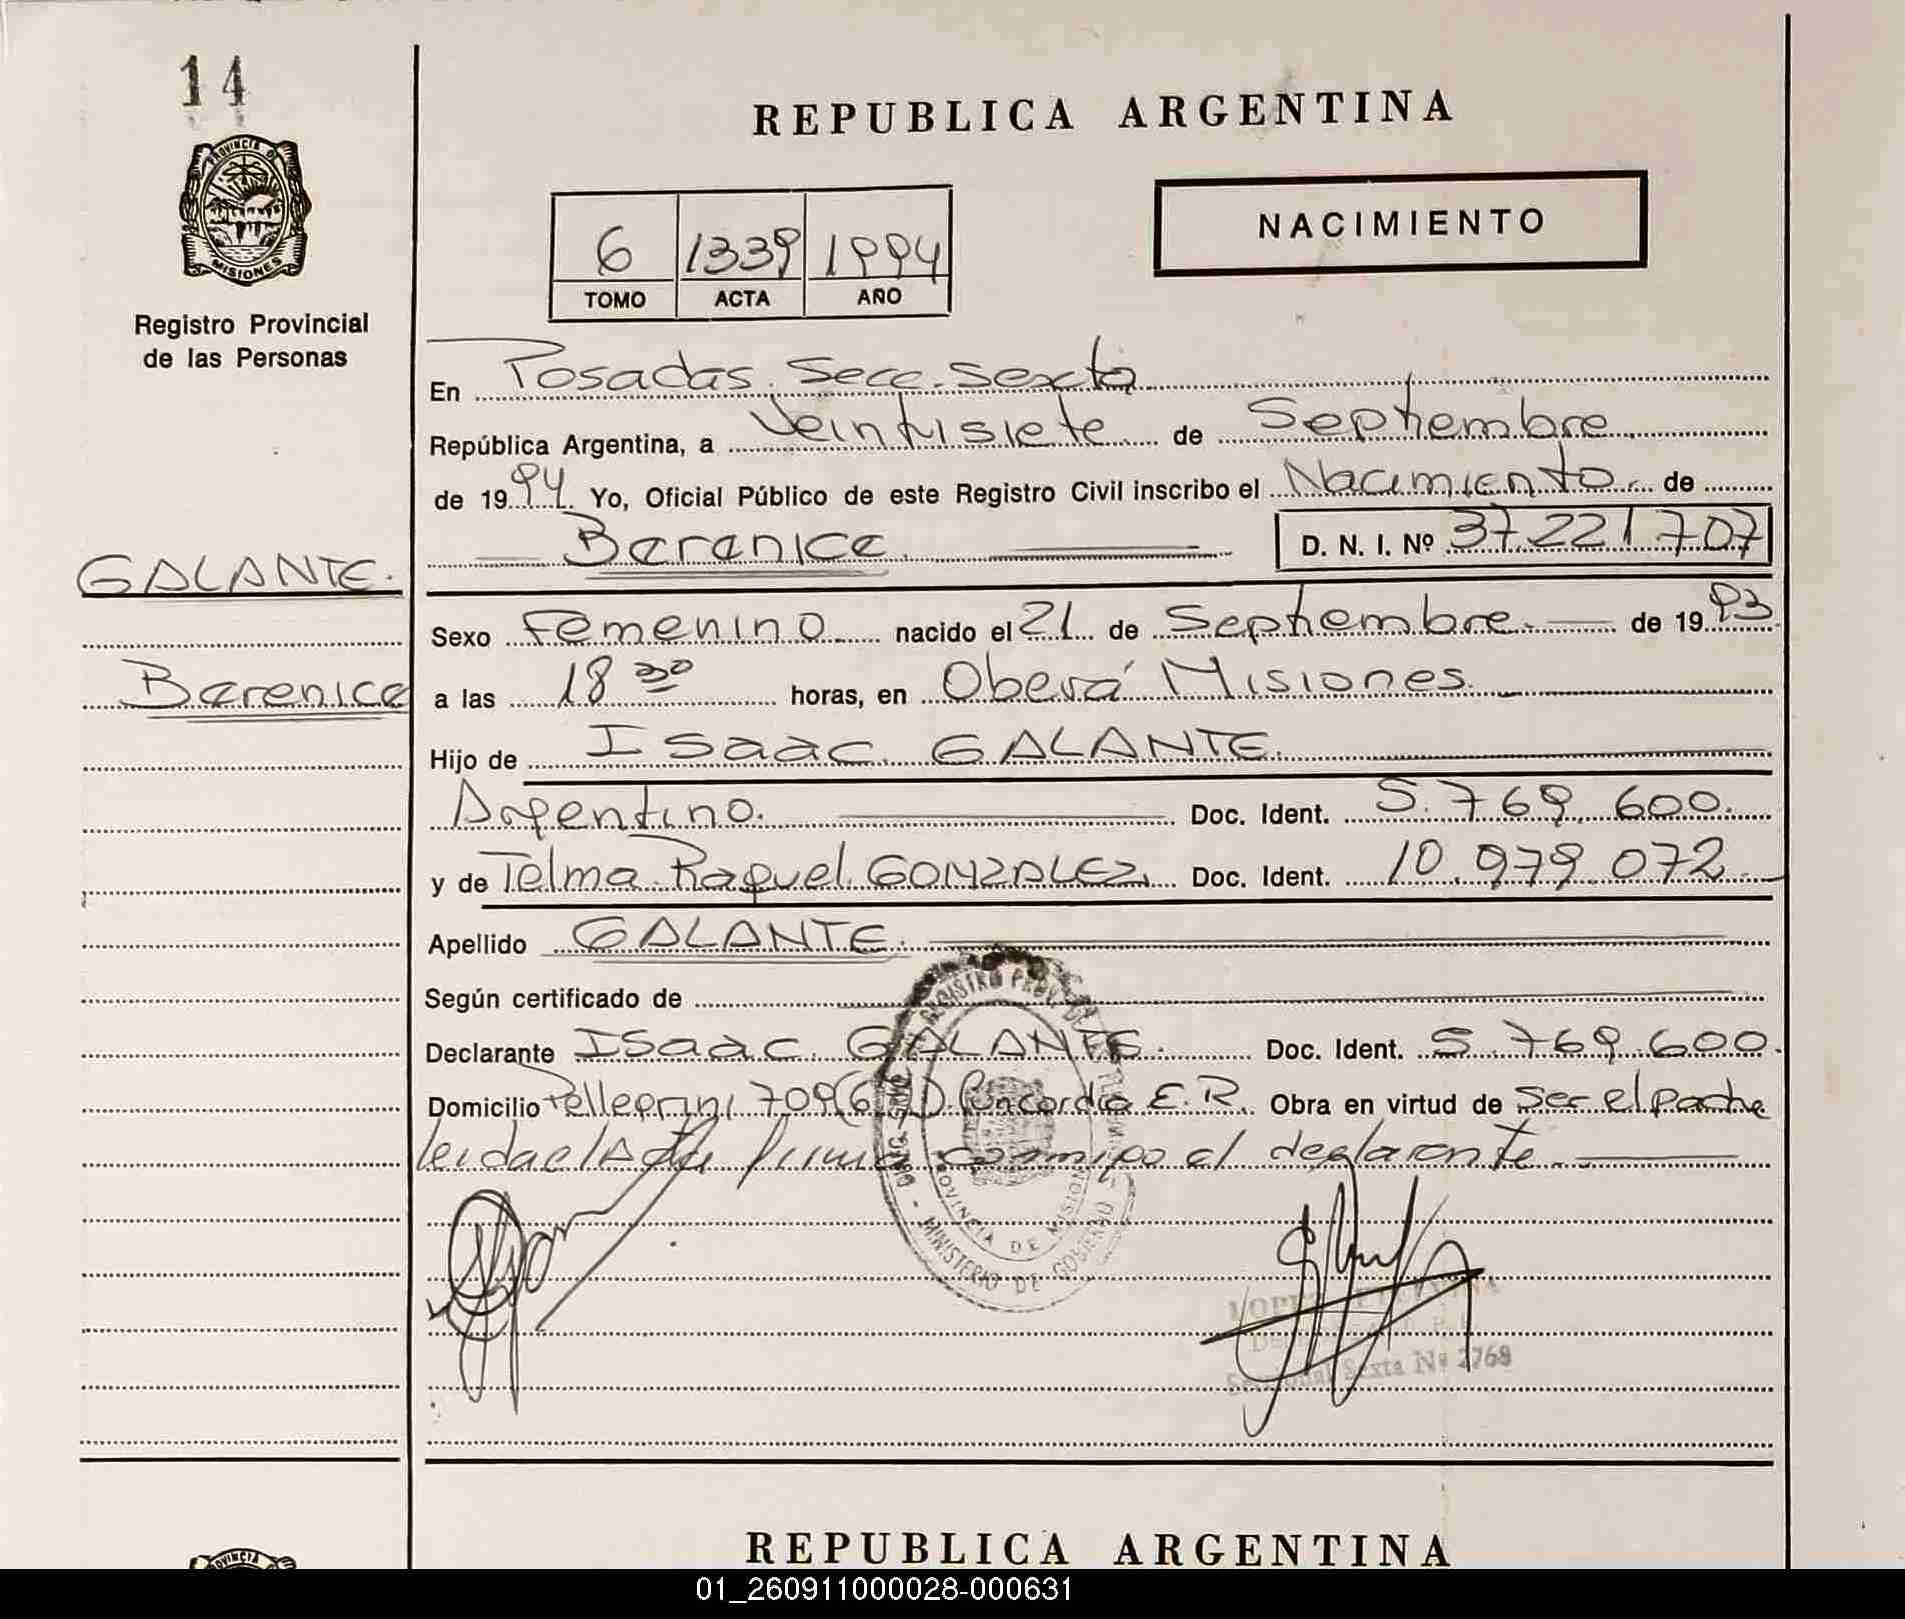 14
REPUBLICA ARGENTINA
PROVINCIA DE
MISIONES
NACIMIENTO
6 1339 1994
TOMO ACTA AÑO
Registro Provincial
de las Personas
En Posadas. Secc. Sexta
República Argentina, a Veintisiete de Septiembre
de 1994. Yo, Oficial Público de este Registro Civil inscribo el Nacimiento de
Berenice D. N. I. Nº 37.221.707
GALANTE.
Sexo Femenino nacido el 21 de Septiembre. de 1993
Berenice
a las 18 30 horas, en Oberá Misiones.
Hijo de Isaac GALANTE.
Argentino. Doc. Ident. 5.769.600.
y de Telma Raquel GONZALEZ. Doc. Ident. 10.979.072
Apellido GALANTE.
Según certificado de
Declarante Isaac GALANTE. Doc. Ident. 5.769.600.
Domicilio Pellegrini 709 Concordia E.R. Obra en virtud de ser el padre
leida el Acta firma conmigo el declarante
REGISTRO PROV. DE LAS
PROVINCIA DE MISIONES
MINISTERIO DE GOBIERNO
LOPEZ
Seccional Sexta Nº 2768
REPUBLICA ARGENTINA
PROVINCIA
01_260911000028-000631